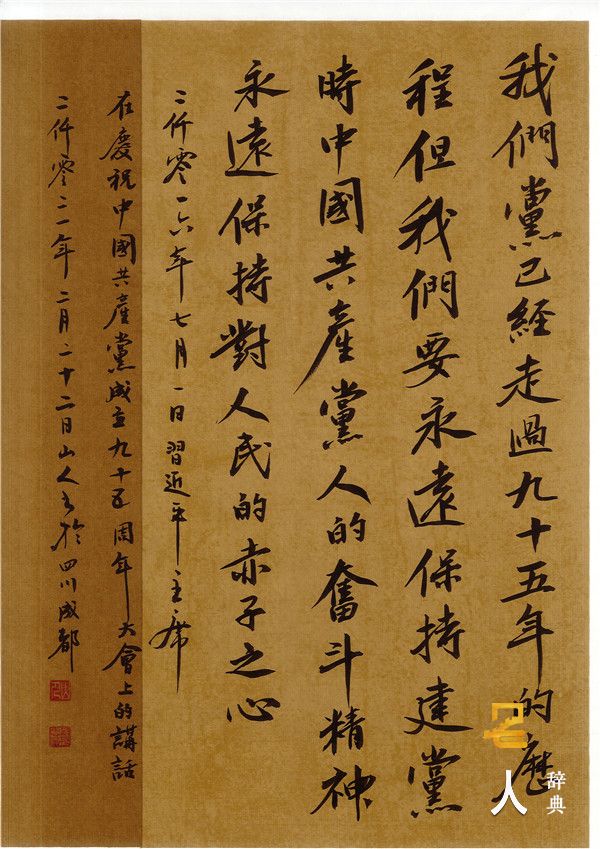 我們黨已經走過九十五年的歷
程但我們要永遠保持建黨
時中國共產黨人的奮斗精神
永遠保持對人民的赤子之心
二仟零一六年七月一日習近平主席
在慶祝中國共產黨成立九十五周年大會上的講話
二仟零二一年二月二十二日山人書於四川成都
名人
辞典